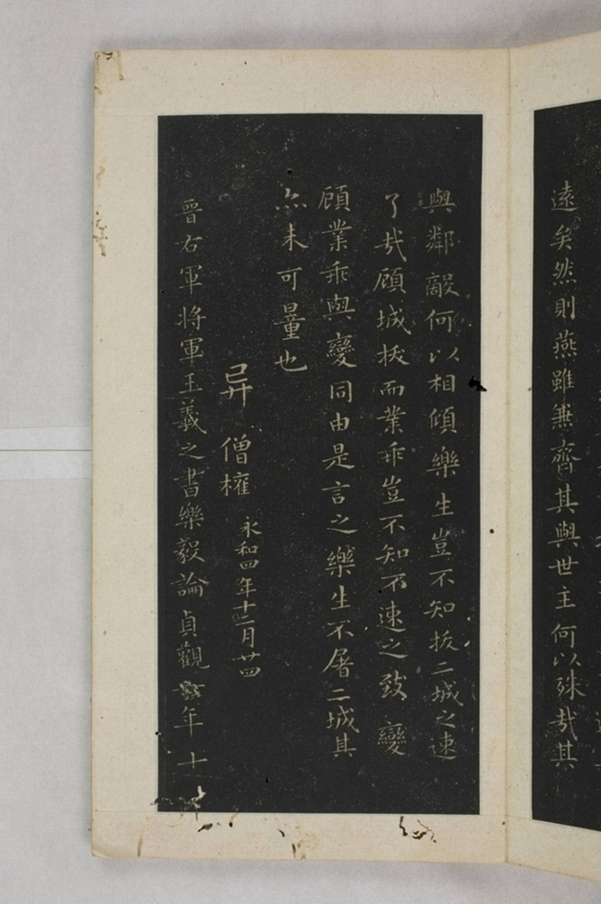 遠矣然則燕雖兼齊其與世主何以殊哉其
與鄰敵何以相傾樂生豈不知拔二城之速
了哉顧城拔而業乖豈不知不速之致變
顧業乖與變同由是言之樂生不屠二城其
亦未可量也
异 僧權 永和四年十二月廿四
晉右軍將軍王羲之書樂毅論貞觀年十